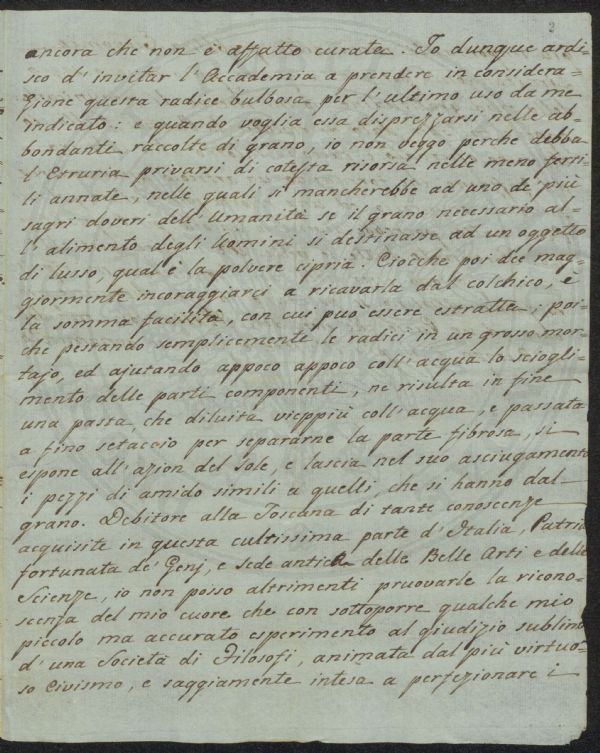 2
ancora che non è affatto curata. Io dunque ardi=
sco d'invitar l'Accademia a prendere in considera=
zione questa radice bulbosa per l'ultimo uso da me
indicato: e quando voglia essa disprezzarsi nelle ab=
bondanti raccolte di grano, io non veggo perche debba
l'Etruria privarsi di cotesta risorsa nelle meno ferti=
li annate, nelle quali si mancherebbe ad uno de' più
sagri doveri dell'Umanità se il grano necessario al=
l'alimento degli Uomini si destinasse ad un oggetto
di lusso qual'è la polvere cipria. Ciocche poi dee mag=
giormente incoraggiarci a ricavarla dal colchico, è
la somma facilità, con cui può essere estratta; poi=
che pestando semplicemente le radici in un grosso mor=
tajo, ed ajutando appoco appoco coll'acqua lo sciogli=
mento delle parti componenti, ne risulta in fine
una pasta, che diluita vieppiù coll'acqua, e passata
a fino setaccio per separarne la parte fibrosa, si
espone all'azion del Sole, e lascia nel suo asciugamento
i pezzi di amido simili a quelli, che si hanno dal
grano. Debitore alla Toscana di tante conoscenze
acquisite in questa cultissima parte d'Italia, Patria
fortunata de' Genj, e sede antica delle Belle Arti e delle
Scienze, io non posso altrimenti pruovarle la ricono=
scenza del mio cuore che con sottoporre qualche mio
piccolo ma accurato esperimento al giudizio sublime
d'una Società di Filosofi, animata dal più virtuo=
so Civismo, e saggiamente intesa a perfezionare i